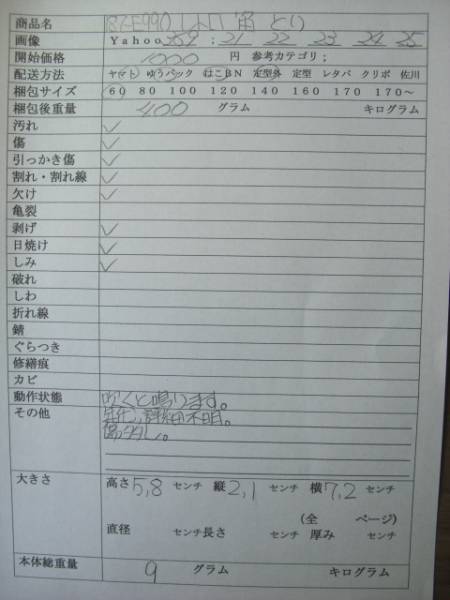 商品名 87-E990 しょい笛 とり
画像 Yahoo 259 ; 21 22 23 24 25
開始価格 1000 円 参考カテゴリ;
配送方法 ヤマト ゆうパック はこBN 定型外 定型 レタパ クリポ 佐川
梱包サイズ 60 80 100 120 140 160 170 170〜
梱包後重量 400 グラム キログラム
汚れ ✓
傷 ✓
引っかき傷 ✓
割れ・割れ線 ✓
欠け ✓
亀裂
剥げ ✓
日焼け ✓
しみ ✓
破れ
しわ
折れ線
錆
ぐらつき
修繕痕
カビ
動作状態 吹くと鳴ります。
その他 年代、詳細不明。
傷多少。
大きさ 高さ 5,8 センチ 縦 2,1 センチ 横 7,2 センチ
(全 ページ)
直径 センチ 長さ センチ 厚み センチ
本体総重量 9 グラム キログラム